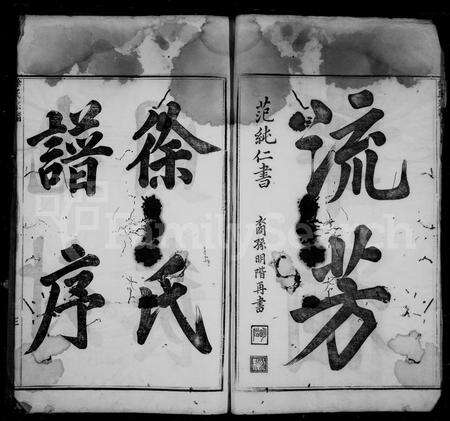 流芳
范純仁書
裔孫明階再書
徐氏
譜序
FamilySearch